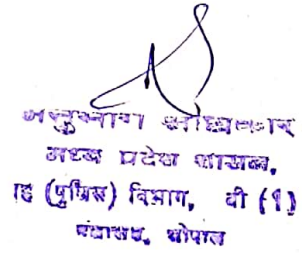 अनुभाग अधिकार
मध्य प्रदेश शासन,
गृह (पुलिस) विभाग, बी (1)
मंत्रालय, भोपाल